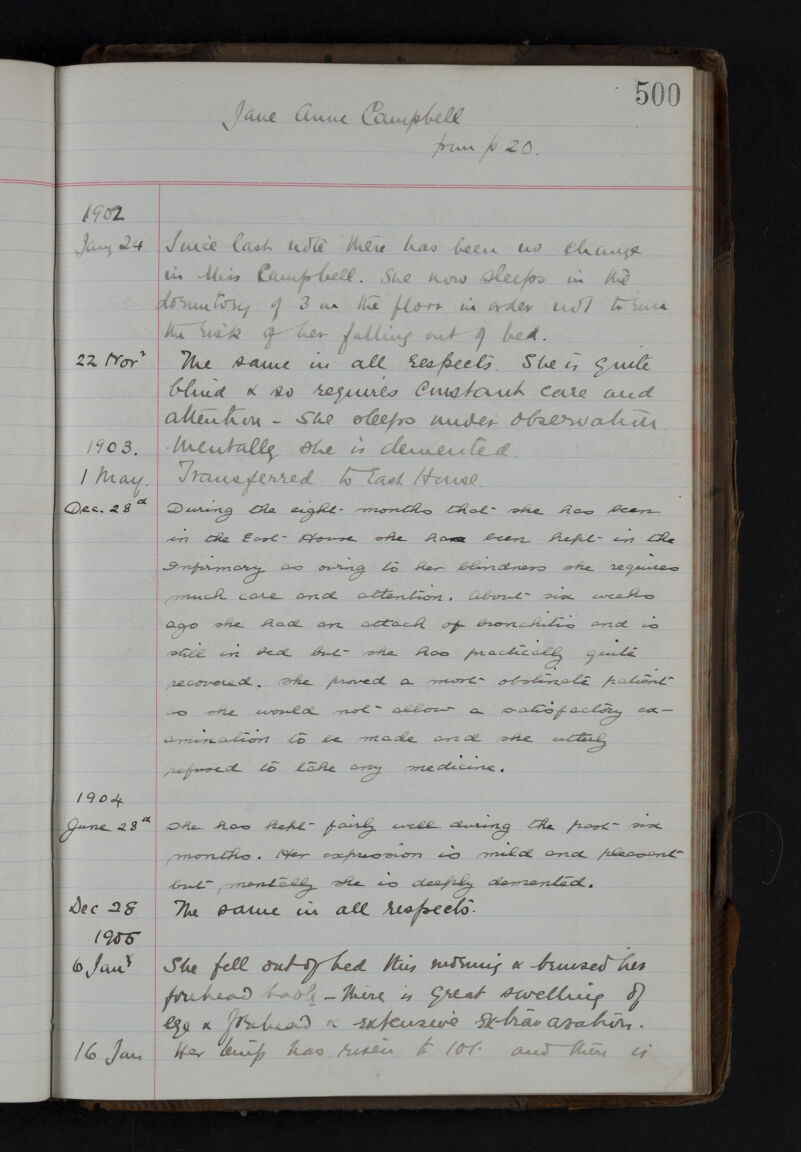 500
Jane Anne Campbell
from p 20.
1902
Jany 24 Since last note there has been no change
in Miss Campbell. She now sleeps in the
dormitory of 3 on the floor in order not to run
the risk of her falling out of bed.
22 Novr The same in all respects. She is quite
blind & so requires constant care and
attention - She sleeps under observation.
1903. Mentally she is demented.
1 May. Transferred to East House.
Dec. 28d During the eight months that she has been
in the East House she has been kept in the
Infirmary as owing to her blindness she requires
much care and attention. About six weeks
ago she had an attack of bronchitis and is
still in bed but she has practically quite
recovered. She proved a most obstinate patient
as she would not allow a satisfactory ex-
amination to be made and she utterly
refused to take any medicine.
1904
June 28d She has kept fairly well during the past six
months. Her expression is mild and pleasant
but mentally she is deeply demented.
Dec 28 The same in all respects.
1905
6 Jany She fell out of bed this morning & bruised her
forehead badly - there is great swelling of
eye & forehead & extensive extravasation.
16 Jan Her temp has risen to 101. and there is